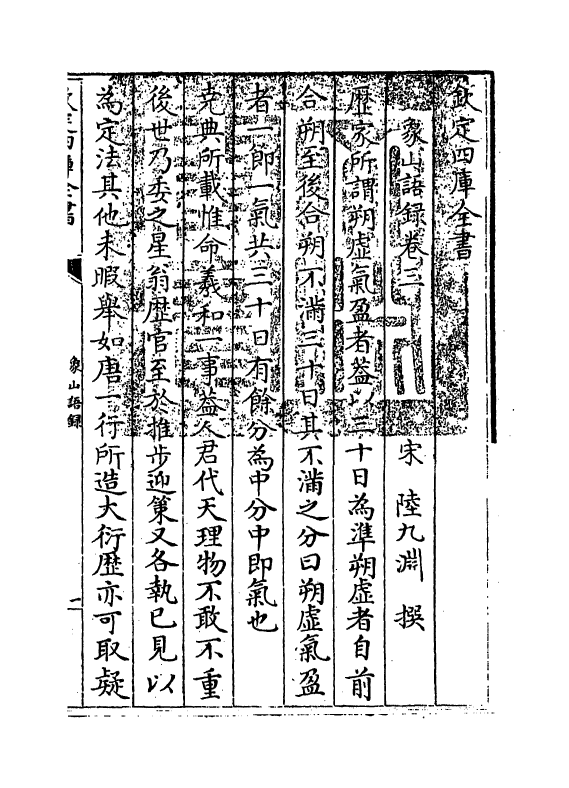 欽定四庫全書
象山語録卷三
宋 陸九淵 撰
歴家所謂朔虚氣盈者葢以三十日為準朔虚者自前
合朔至後合朔不滿三十日其不滿之分曰朔虚氣盈
者一節一氣共三十日有餘分為中分中即氣也
堯典所載惟命羲和一事葢人君代天理物不敢不重
後世乃委之星翁歴官至於推步迎策又各執已見以
為定法其他未暇舉如唐一行所造大衍歴亦可取疑
欽定四庫全書
象山語録
一